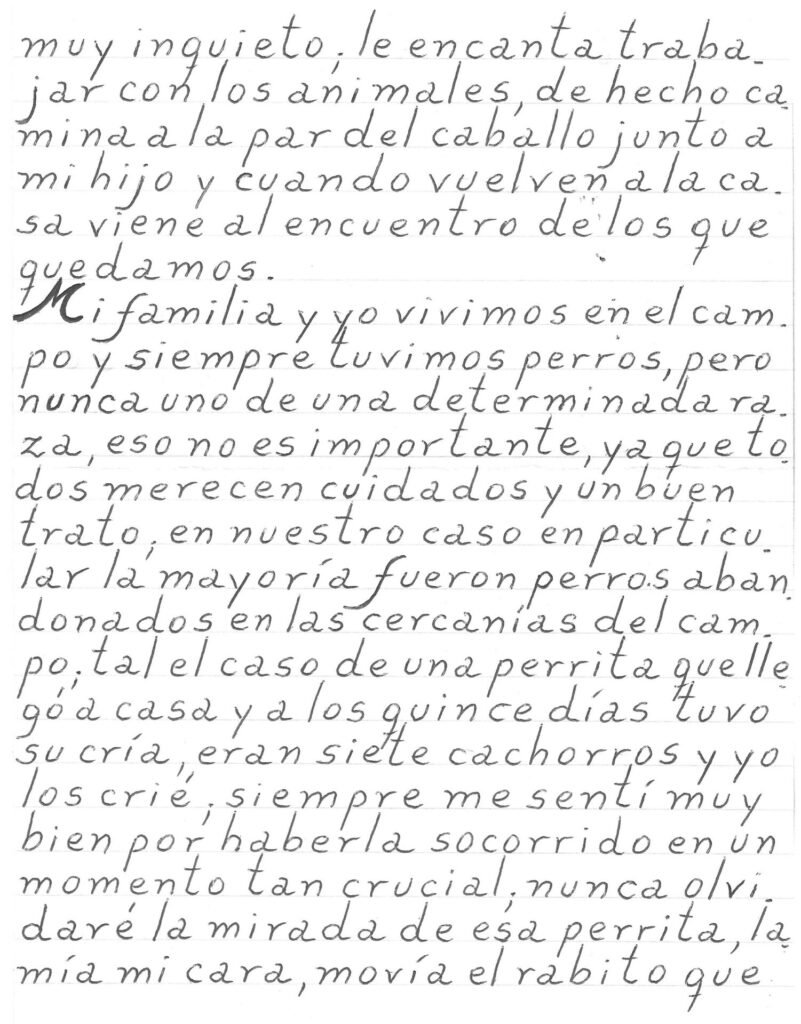 muy inquieto; le encanta traba-
jar con los animales, de hecho ca
mina a la par del caballo junto a
mi hijo y cuando vuelven a la ca-
sa viene al encuentro de los que
quedamos.
Mi familia y yo vivimos en el cam-
po y siempre tuvimos perros, pero
nunca uno de una determinada ra-
za, eso no es importante, ya que to
dos merecen cuidados y un buen
trato; en nuestro caso en particu-
lar la mayoría fueron perros aban
donados en las cercanías del cam-
po; tal el caso de una perrita que lle
gó a casa y a los quince días tuvo
su cría, eran siete cachorros y yo
los crié; siempre me sentí muy
bien por haberla socorrido en un
momento tan crucial; nunca olvi-
daré la mirada de esa perrita, la
mía mi cara, movía el rabito que